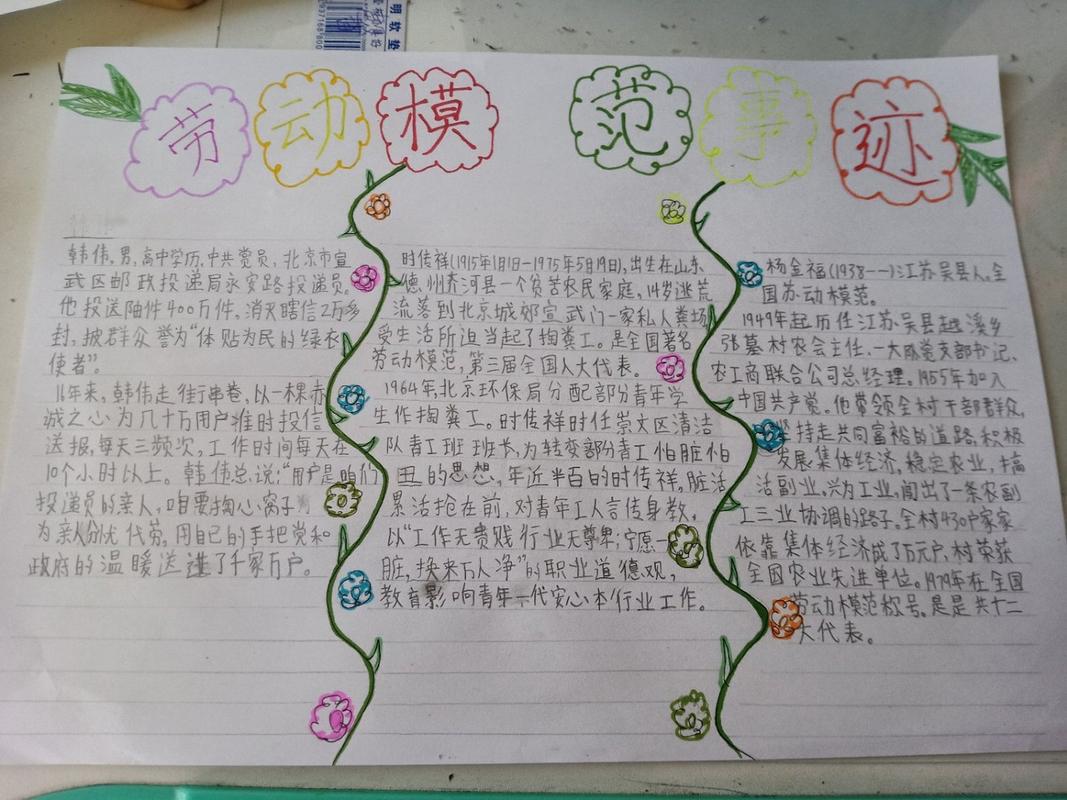 劳动模范事迹
韩伟,男,高中学历,中共党员,北京市宣
武区邮政投递局永安路投递员。
他投送邮件400万件,消灭瞎信2万多
封,被群众誉为“体贴为民的绿衣
使者”。
16年来,韩伟走街串巷,以一棵赤
诚之心为几十万用户准时投信
送报,每天三频次,工作时间每天在
10个小时以上。韩伟总说:“用户是咱们
投递员的亲人,咱要掏心窝子
为亲人分忧代劳。用自己的手把党和
政府的温暖送进了千家万户。
时传祥(1915年1月1日-1975年5月19日),出生在山东
德州齐河县一个贫苦农民家庭,14岁逃荒
流落到北京城郊宣武门一家私人粪场,
受生活所迫当起了掏粪工。是全国著名
劳动模范,第三届全国人大代表。
1964年,北京环保局分配部份青年学
生作掏粪工。时传祥时任崇文区清洁
队青工班班长,为转变部分青工怕脏怕
丑的思想,年近半百的时传祥,脏活
累活抢在前,对青年工人言传身教,
以“工作无贵贱行业无尊卑;宁愿一
脏,换来万人净”的职业道德观,
教育影响青年一代安心本行业工作。
杨金福(1938——)江苏吴县人,全
国劳动模范。
1949年起历任江苏吴县越溪乡
张墓村农会主任、一大队党支部书记、
农工商联合公司总经理。1955年加入
中国共产党。他带领全村干部群众,
坚持走共同富裕的道路,积极
发展集体经济,稳定农业,搞
活副业,兴为工业,闯出了一条农副
工三业协调的路子。全村430户家家
依靠集体经济成了万元户,村荣获
全国农业先进单位。1979年在全国
劳动模范称号。是是共十二
大代表。